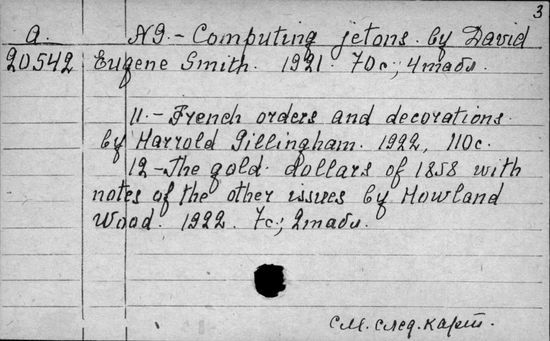 3
a. N9.- Computing jetons by David
20542 Eugene Smith. 1921. 70 c.; 4 табл.
11.- French orders and decorations
by Harrold Gillingham. 1922, 110 c.
12 - The gold dollars of 1858 with
notes of the other issues by Howland
Wood. 1922. 7c.; 2 табл.
см. след. карт.